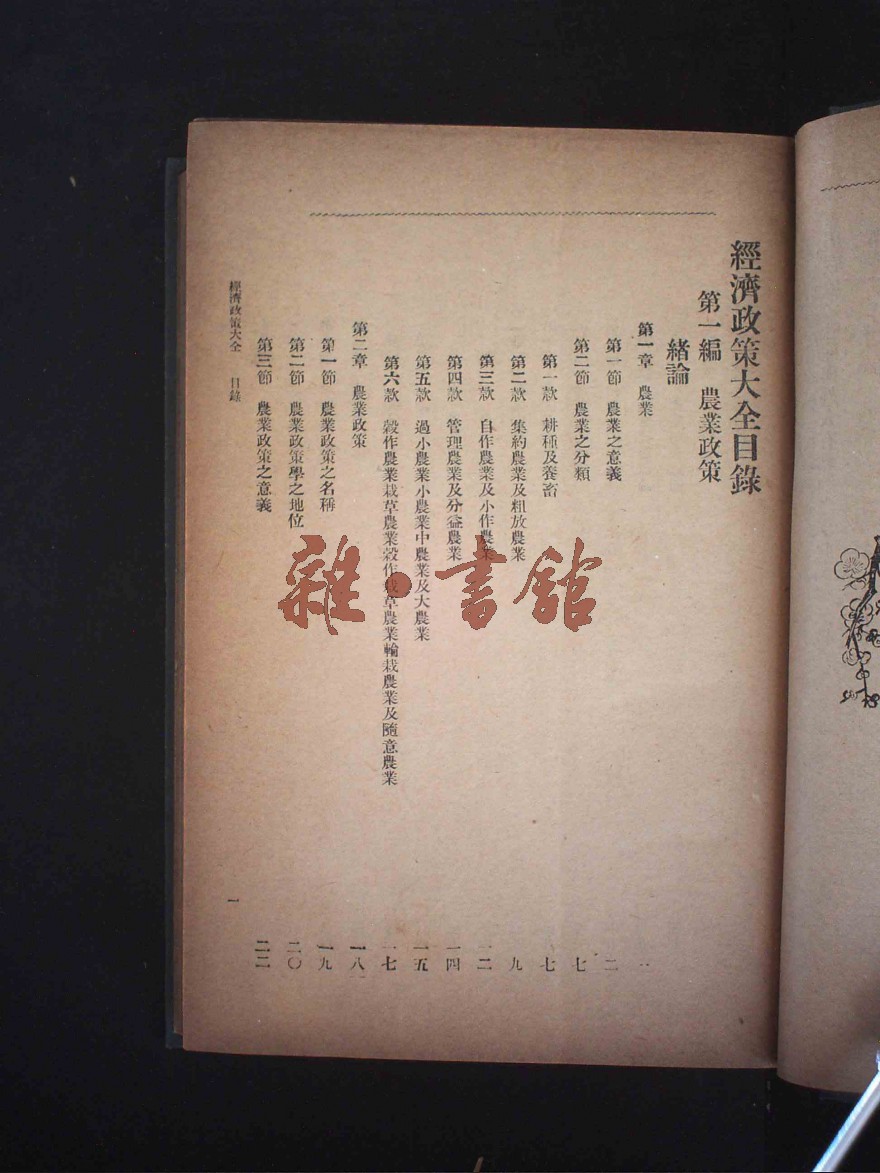 經濟政策大全目錄
第一編　農業政策
緒論
第一章　農業　一
第一節　農業之意義　二
第二節　農業之分類　七
第一款　耕種及養畜　七
第二款　集約農業及粗放農業　九
第三款　自作農業及小作農業　一二
第四款　管理農業及分益農業　一四
第五款　過小農業小農業中農業及大農業　一五
第六款　穀作農業栽草農業穀作栽草農業輪栽農業及隨意農業　一七
第二章　農業政策　一八
第一節　農業政策之名稱　一九
第二節　農業政策學之地位　二〇
第三節　農業政策之意義　二二
經濟政策大全　目錄　一
雜·書館